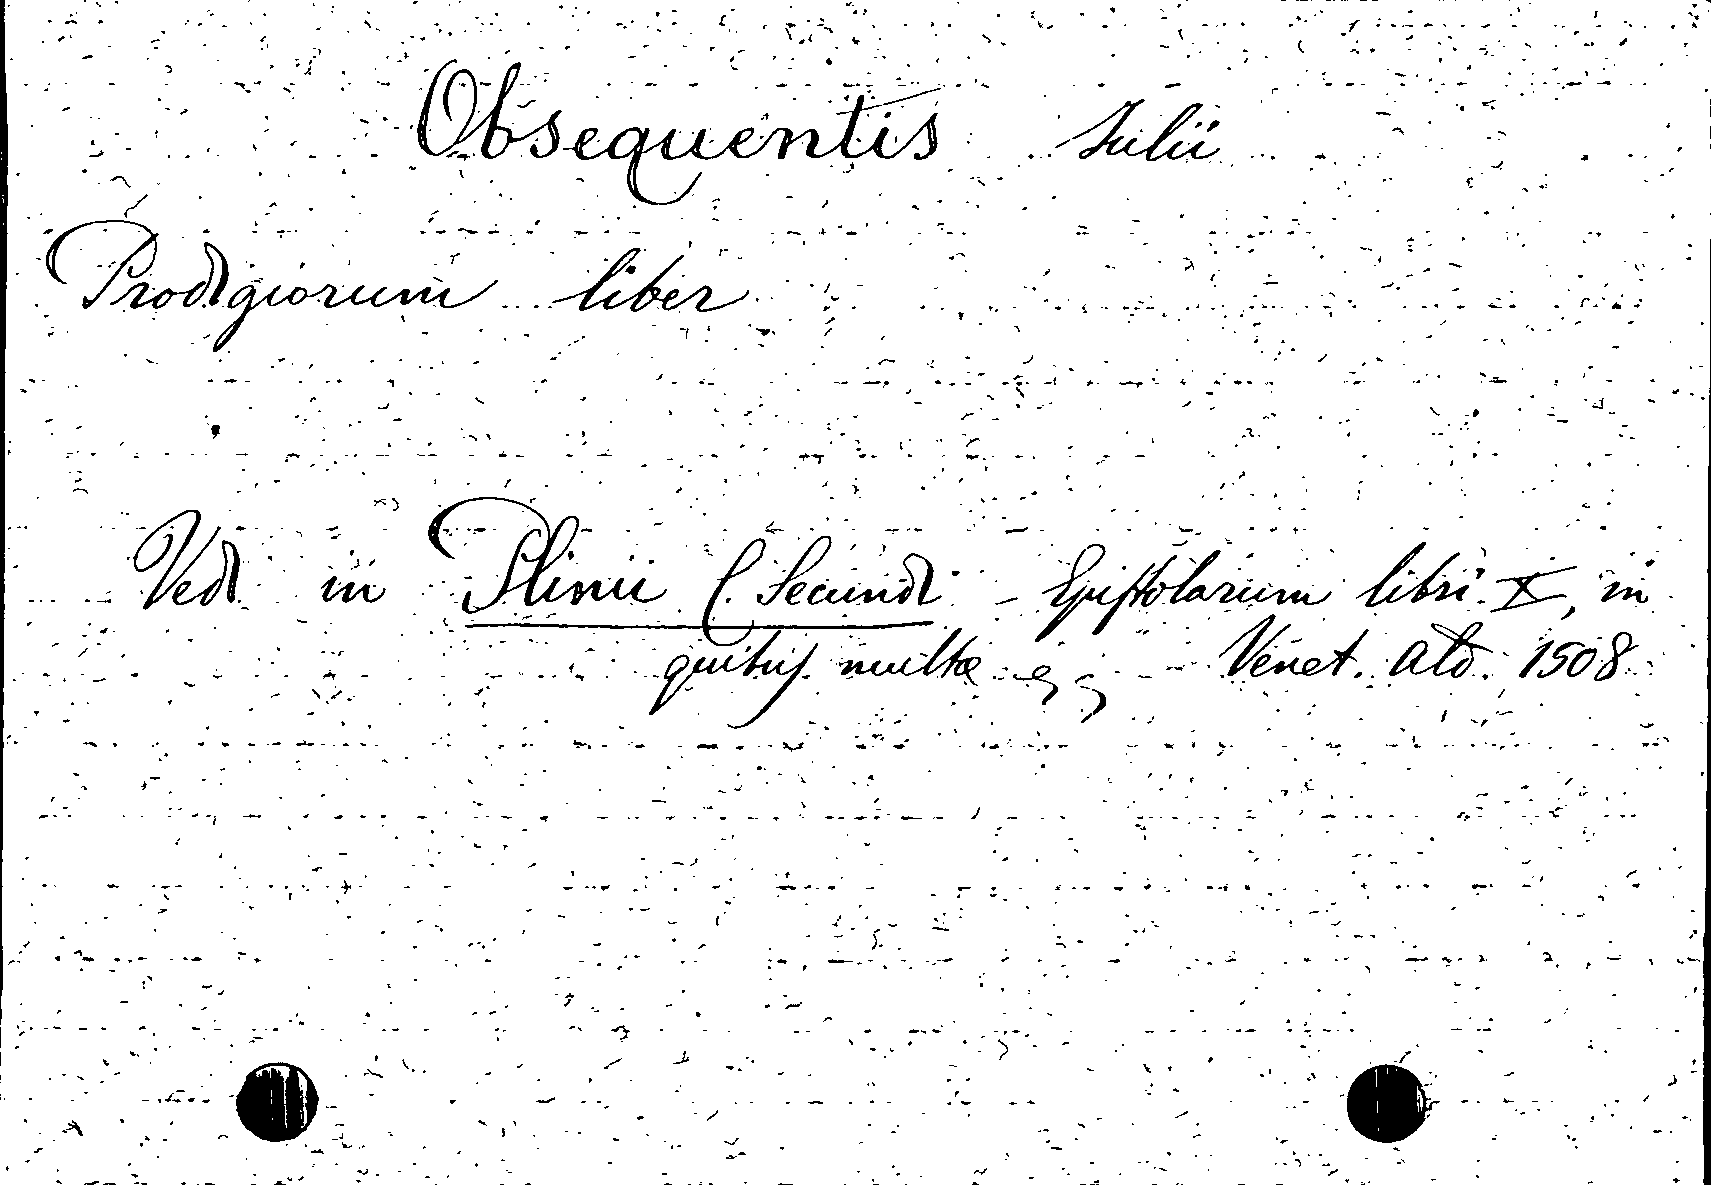 Obsequentis Julii
Prodigiorum liber
Vedi in Plinii C. Secundi - Epistolarum libri X, in
quibus multae - Venet. Ald. 1508